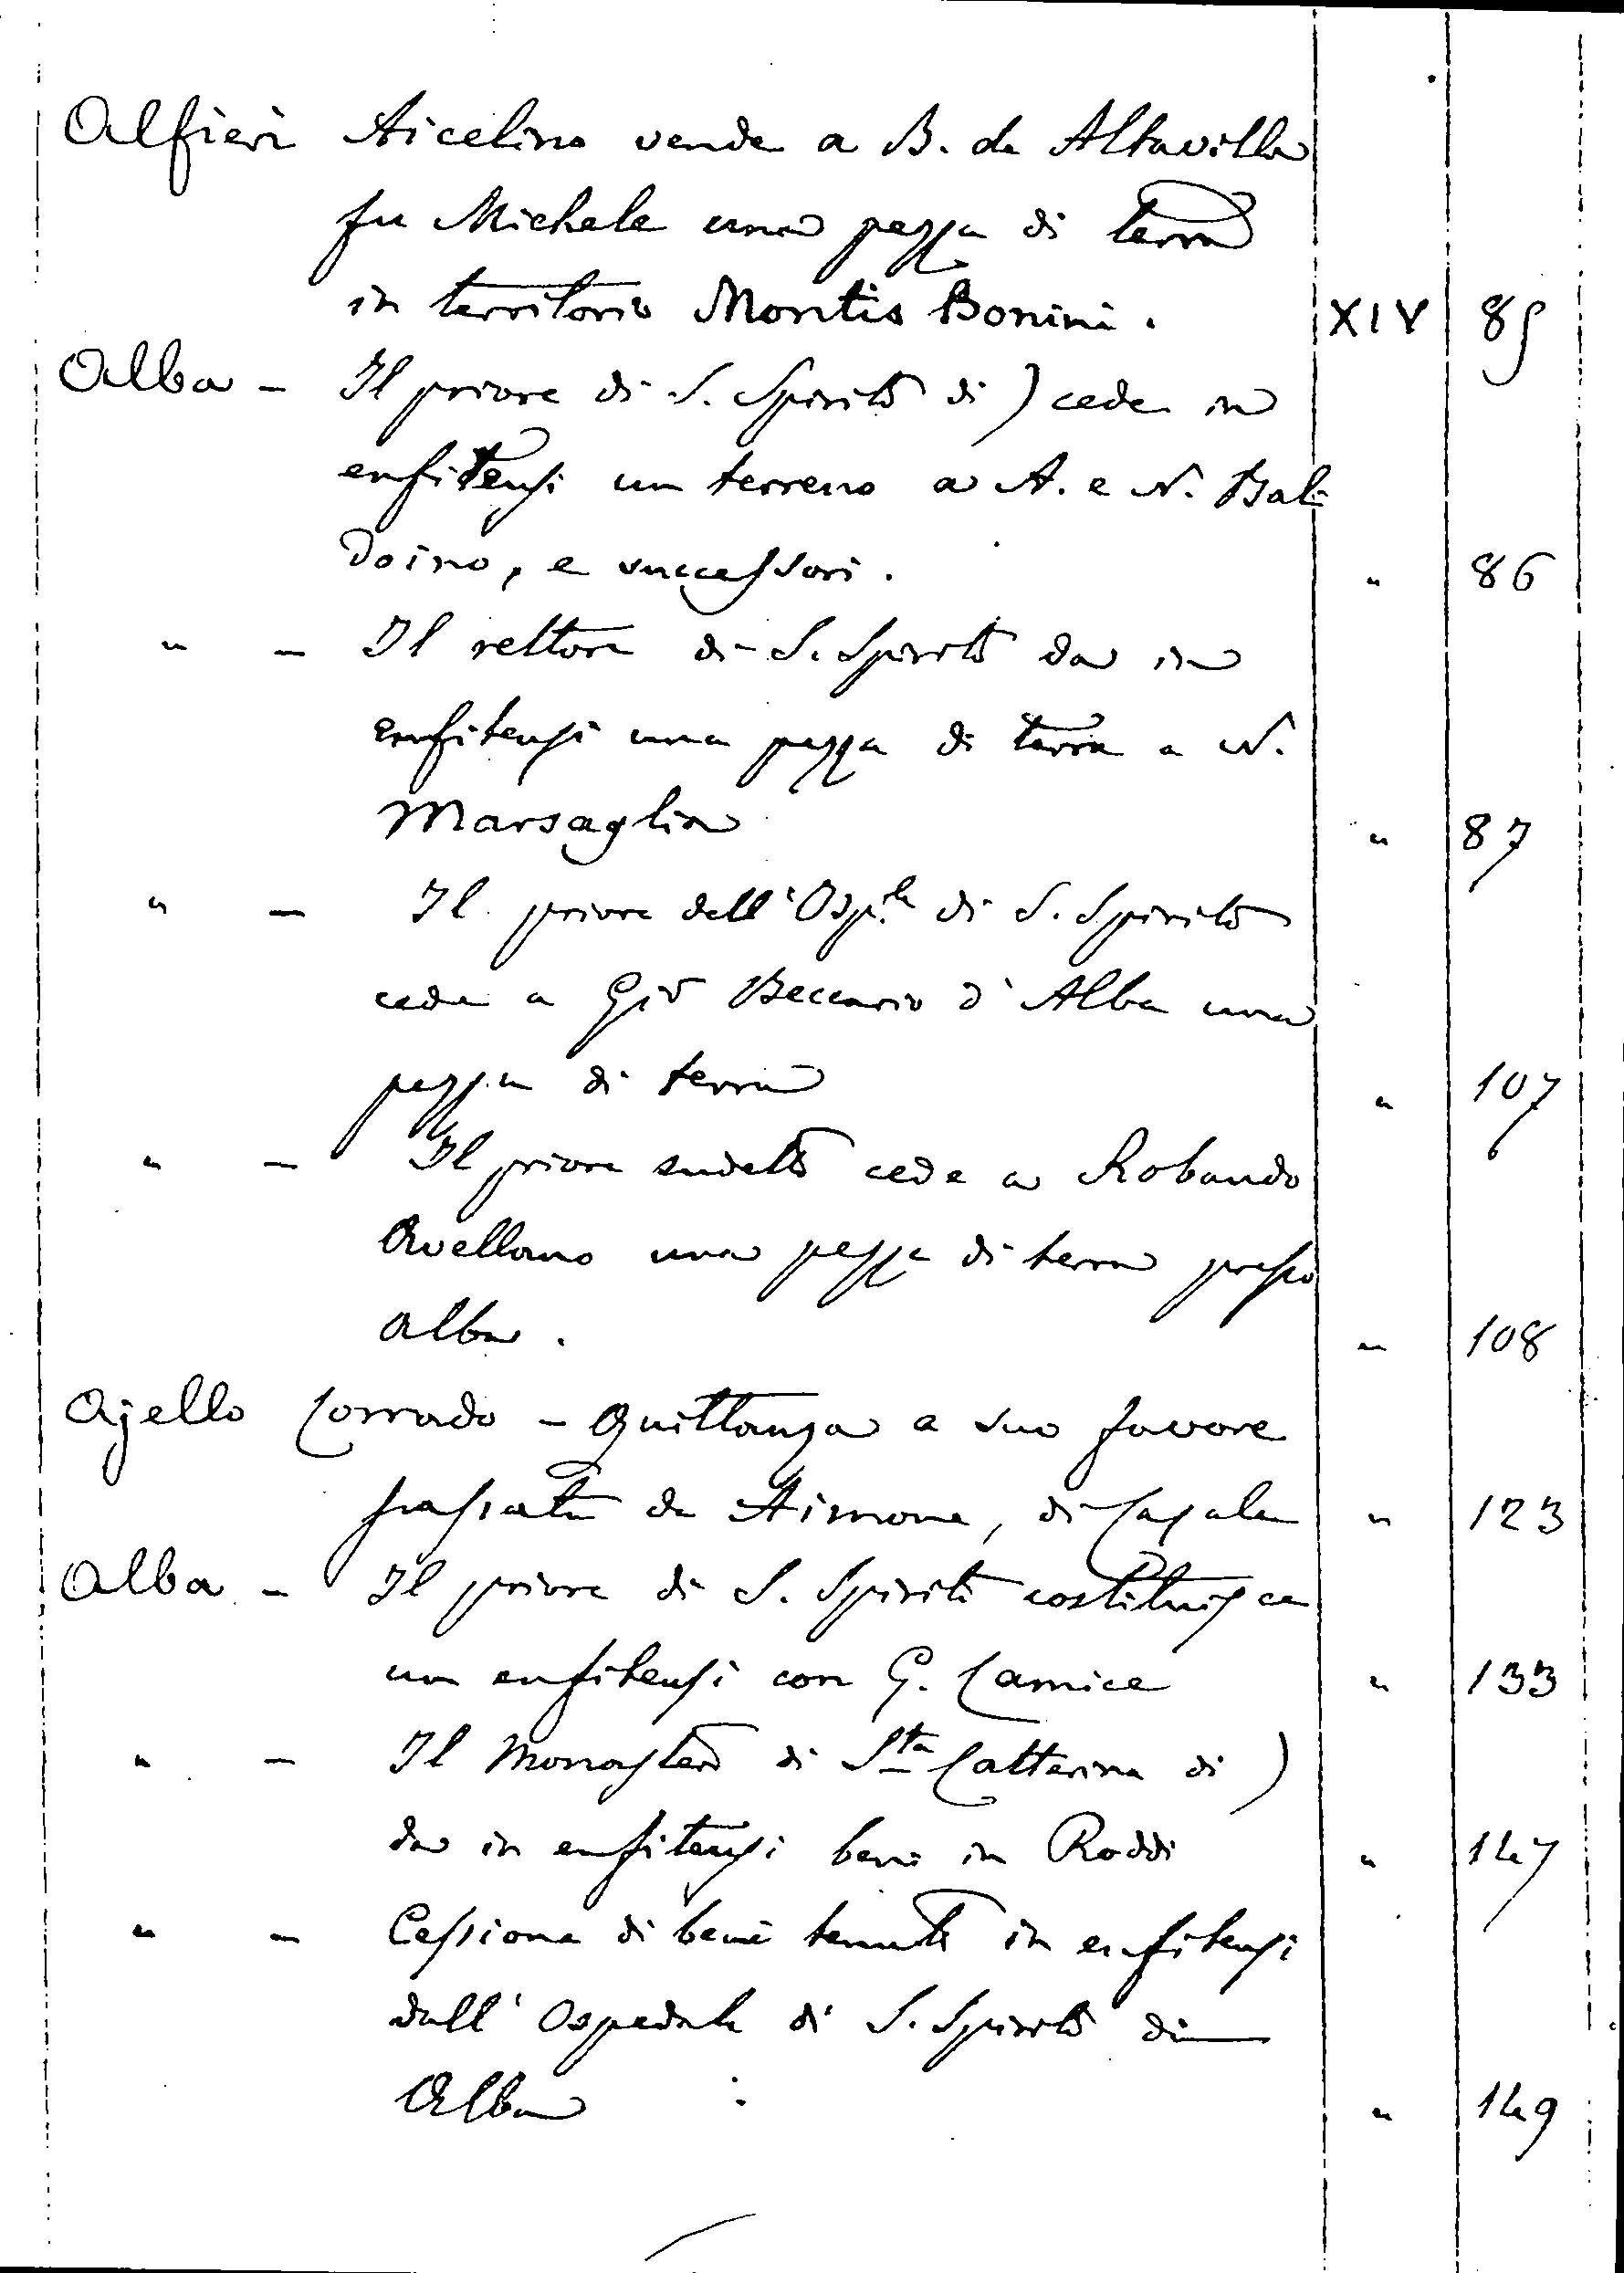 Alfieri Aicelino vende a B. da Altavilla
fu Michele una pezza di terra
in territorio Montis Bonini. XIV 85
Alba - Il priore di S. Spirito di) cede in
enfiteusi un terreno a A. e N. Bal-
doino, e successori. " 86
" - Il rettore di S. Spirito da in
enfiteusi una pezza di terra a N.
Marsaglia " 87
" - Il priore dell'Osp.le di S. Spirito
cede a Gio Beccario d'Alba una
pezza di terra " 107
" - Il priore sudetto cede a Robando
Avellano una pezza di terra presso
Alba. " 108
Ajello Corrado - Quittanza a suo favore
passata da Aimone, di Casale " 123
Alba - Il priore di S. Spirito costituisce
un enfiteusi con G. Camice " 133
" - Il Monastero di Sta Catterina di)
da in enfiteusi beni in Roddi " 147
" - Cessione di beni tenuti in enfiteusi
dall'Ospedale di S. Spirito di
Alba " 149